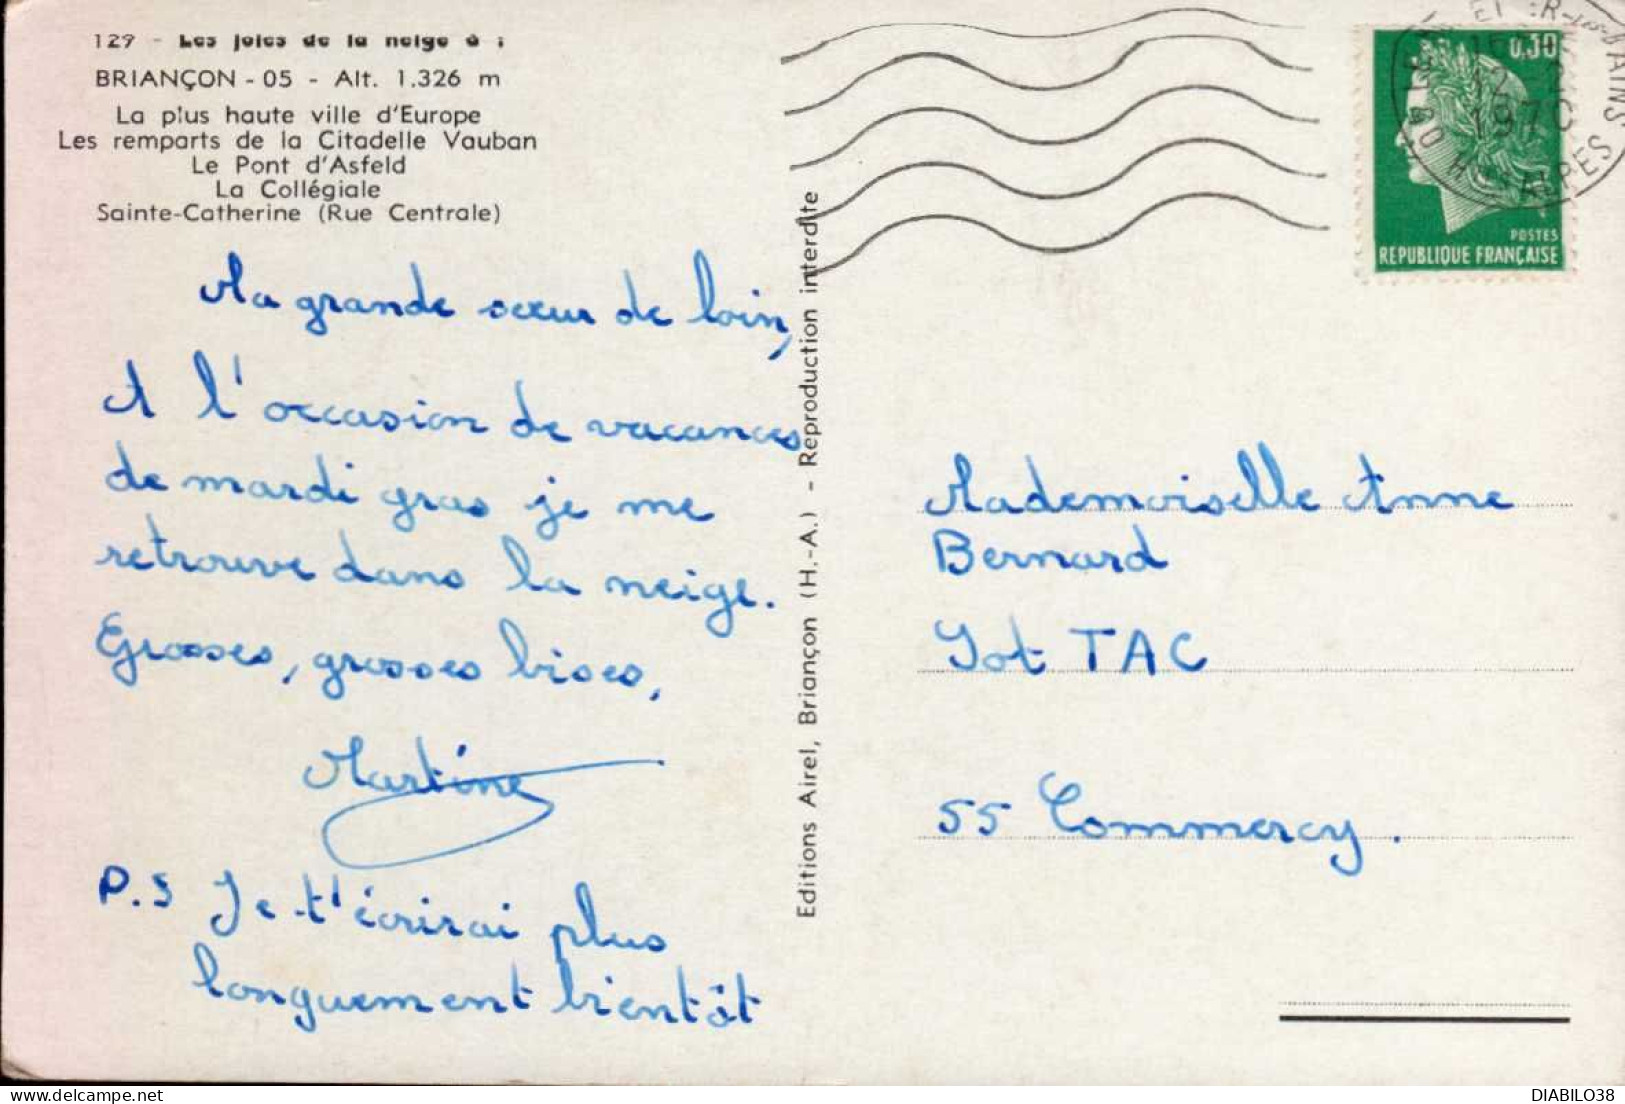 129 - Les joies de la neige à :
BRIANÇON - 05 - Alt. 1.326 m
La plus haute ville d'Europe
Les remparts de la Citadelle Vauban
Le Pont d'Asfeld
La Collégiale
Sainte-Catherine (Rue Centrale)
Ma grande sœur de loin,
A l'occasion de vacances
de mardi gras je me
retrouve dans la neige.
Grosses, grosses bises,
Martine
P.S Je t'écrirai plus
longuement bientôt
Editions Airel, Briançon (H.-A.) - Reproduction interdite
0,30
POSTES
REPUBLIQUE FRANÇAISE
1970
Htes ALPES
Mademoiselle Anne
Bernard
Iot TAC
55 Commercy.
DIABILO38